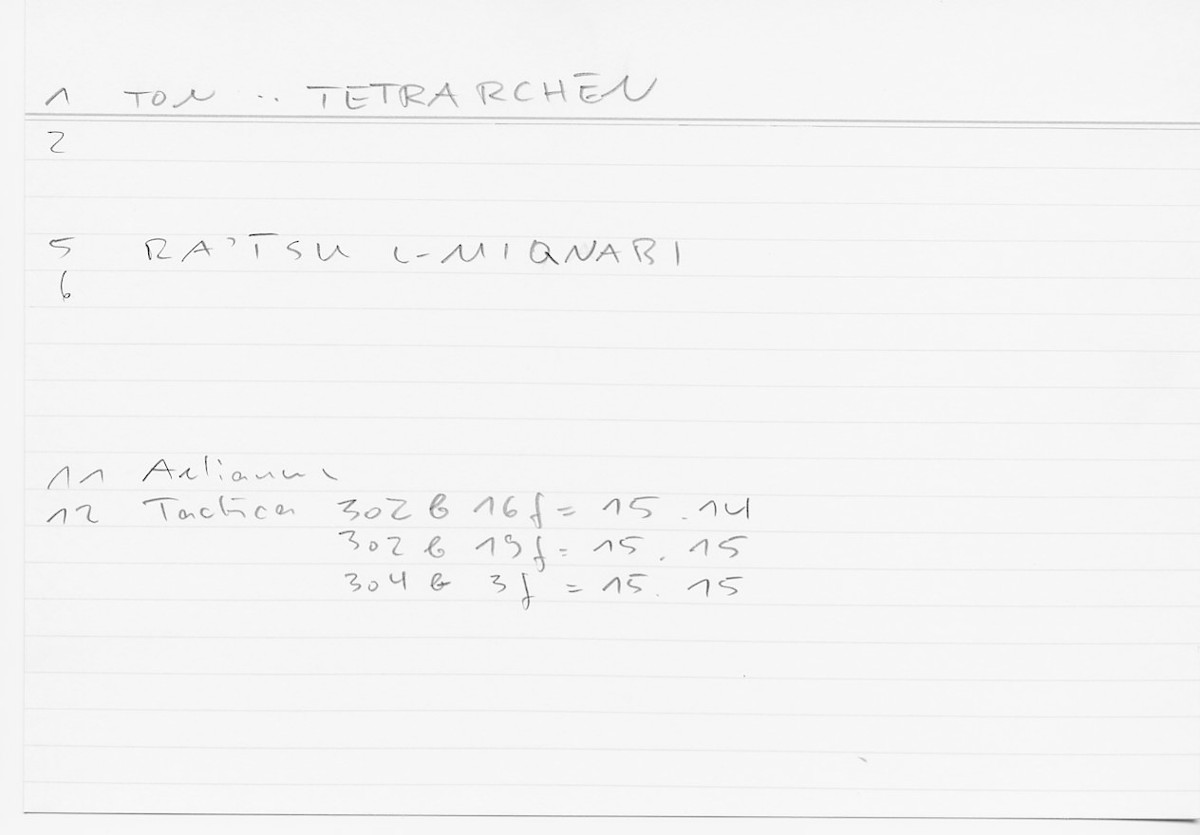 1 TON .. TETRARCHĒN
2
5 RA'ĪSU L-MIQNABI
6
11 Aelianus
12 Tactica 302 b 16f = 15.14
302 b 19f = 15.15
304 b 3f = 15.15